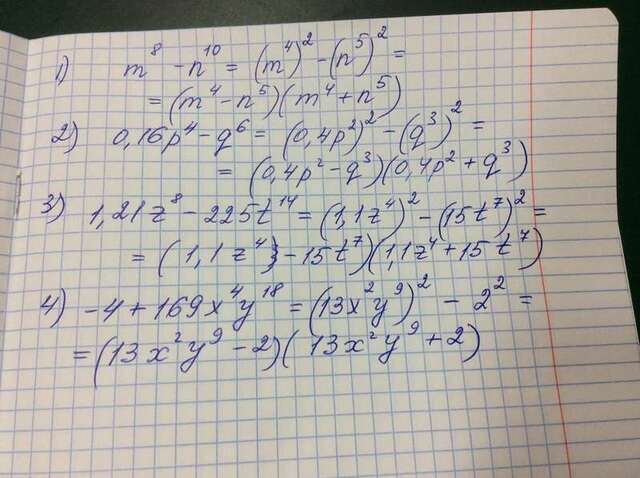 1) m⁸ - n¹⁰ = (m⁴)² - (n⁵)² =
= (m⁴ - n⁵)(m⁴ + n⁵)
2) 0,16p⁴ - q⁶ = (0,4p²)² - (q³)² =
= (0,4p² - q³)(0,4p² + q³)
3) 1,21z⁸ - 225t¹⁴ = (1,1z⁴)² - (15t⁷)² =
= (1,1z⁴) - 15t⁷)(1,1z⁴ + 15t⁷)
4) -4 + 169x⁴y¹⁸ = (13x²y⁹)² - 2² =
= (13x²y⁹ - 2)(13x²y⁹ + 2)